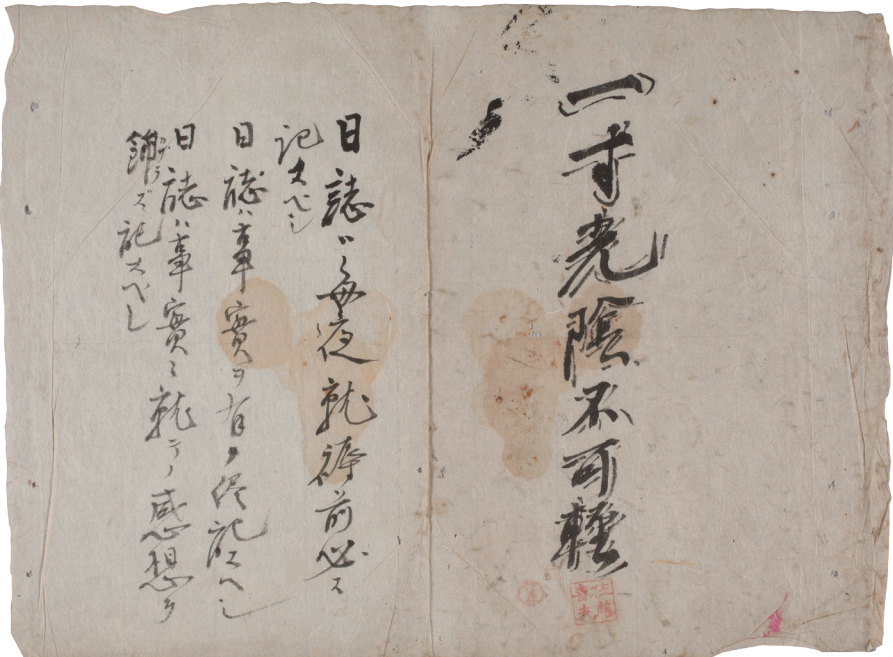 一寸光陰不可軽
日誌ハ毎夜就褥前必ズ
記スベシ
日誌ハ事實ヲ有ノ侭記スベシ
日誌ハ事實ニ就テノ感想ヲ
飾ラズ記スベシ